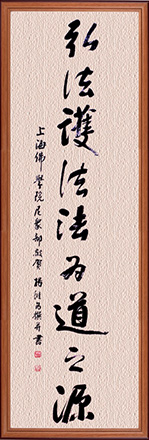 弘法護法法為道之源
上海佛學院尼眾部敬賀 楊 撰并書